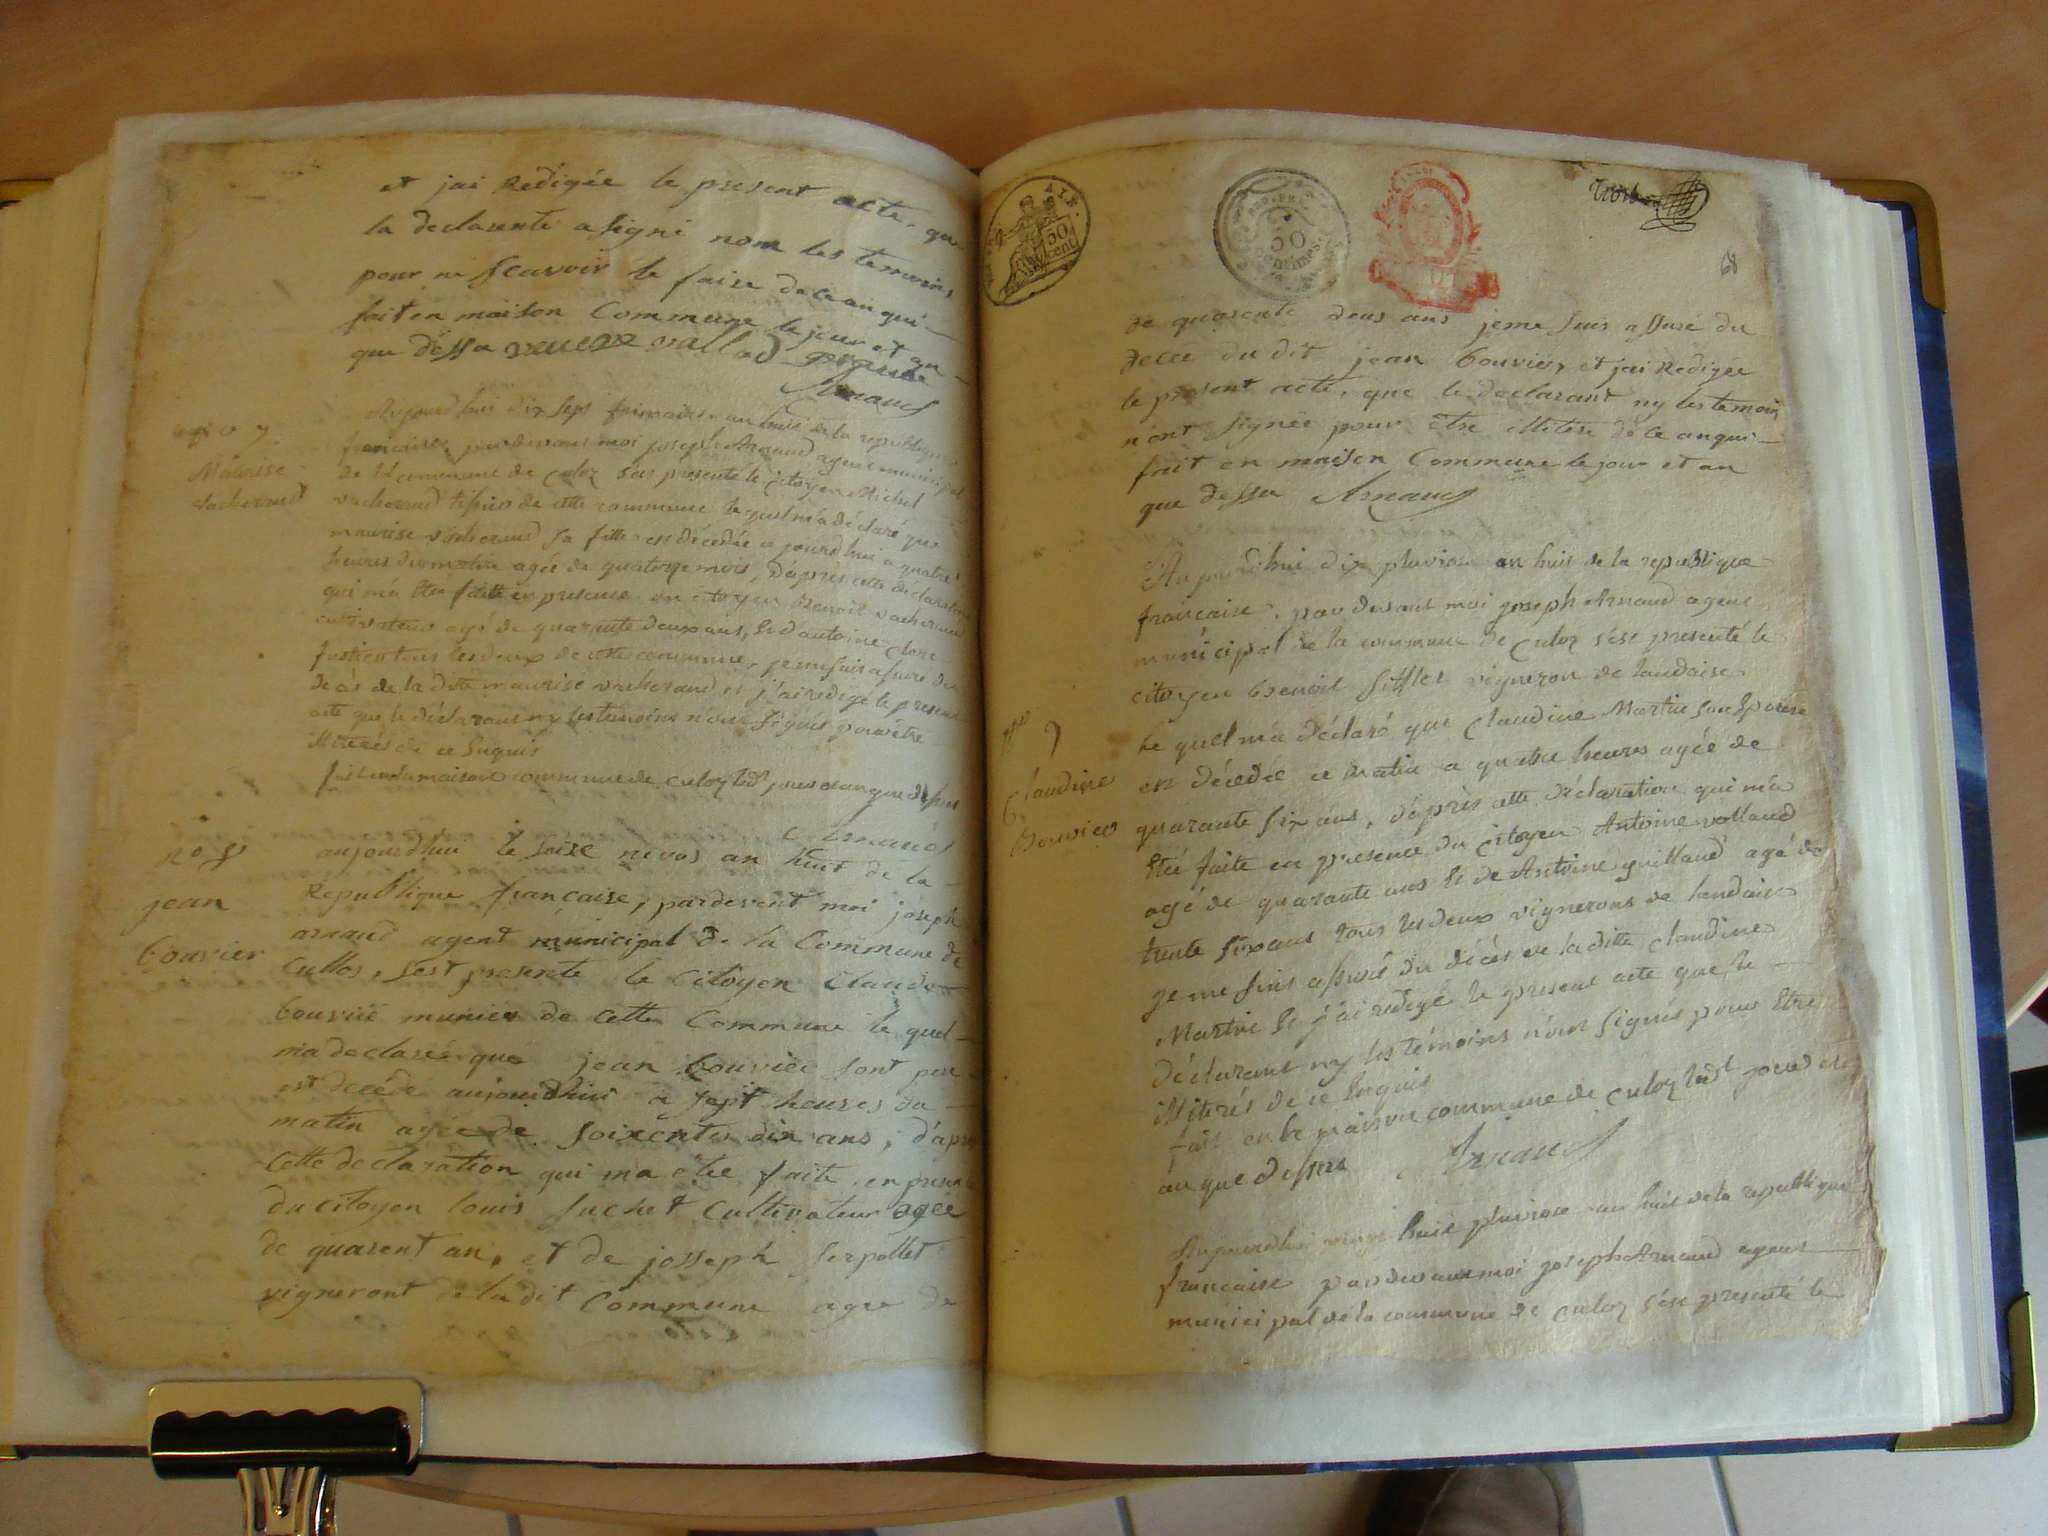 et jai Redigée le present acte, que
la declarente a signé nom les temoins
pour ne scavoir le faire de ce anqui
fait en maison Commune le jour et an
que dessu veuve vallod
Arnaud
Aujourd'hui dix sept frimaire an huit de la republique
francaise, pardevant moi joseph Arnaud agent municipal
de la commune de culoz s'est presenté le citoyen Michel
vacherand de cette commune lequel m'a déclaré que
maurise vacherand sa fille est décédée ce jourd'hui a quatre
heures du matin agée de quatorze mois, d'après cette déclaration
qui m'a été faitte en presence du citoyen Benoit vacherand
cultivateur agé de quarante deux ans, & d'antoine
tous les deux de cette commune, je me suis assuré du
décès de la ditte maurise vacherand et j'ai redigé le present
acte que le déclarant ny les temoins n'ont signés pour être
illiterés de ce Enquis
fait en la maison commune de culoz led.t jour et an que dessus
Arnaud
n° 7
Maurise
vacherand
n° 8
jean
bouvier
aujourdhui le seize nivos an huit de la
Republique française, pardevent moi joseph
arnaud agent municipal de la Commune de
Cullos, sest presente le Citoyen Claude
bouvié munier de cette Commune le quel
ma declareé que jean bouvier sont pere
est decéde aujourdhui a sept heures du
matin agée de soixente dix ans, d'apres
Cette declaration qui ma étée faite en presence
du Citoyen louis suchet Cultivateur agée
de quarent an, et de josseph serpollet
vigneront de la dit Commune agee de
50
cent
REP. FRA.
50
centimes
68
de quarente deus ans jeme suis assuré du
decee du dit jean bouvier, et jai Redigée
le present acte, que le declarant ny les temoin
n'ont signée pour être illitére de ce anqui
fait en maison Commune le jour et an
que dessu Arnaud
n° 9
Claudine
Bouvier
Aujourd'hui dix pluviose an huit de la republique
francaise, par devant moi joseph Arnaud agent
municipal de la commune de culoz s'est presenté le
citoyen benoit sifflet vigneron de landaise
le quel m'a déclaré que claudine Martin son Epouse
est décédée ce matin a quatre heures agée de
quarante six ans, d'après cette déclaration qui m'a
Eté faite en presence du citoyen Antoine volland
agé de quarante ans & de Antoine guilland agé de
trente six ans tous les deux vignerons de landaise
je me suis assuré du décès de la ditte claudine
Martin & j'ai redigé le present acte que le
déclarant ny les témoins n'ont signés pour Etre
illiterés de ce Enquis
fait en la maison commune de culoz led.t jour et
an que dessus Arnaud
Aujourd'hui vingt huit pluviose an huit de la republique
francaise par devant moi joseph Arnaud agent
municipal de la commune de culoz s'est presenté le